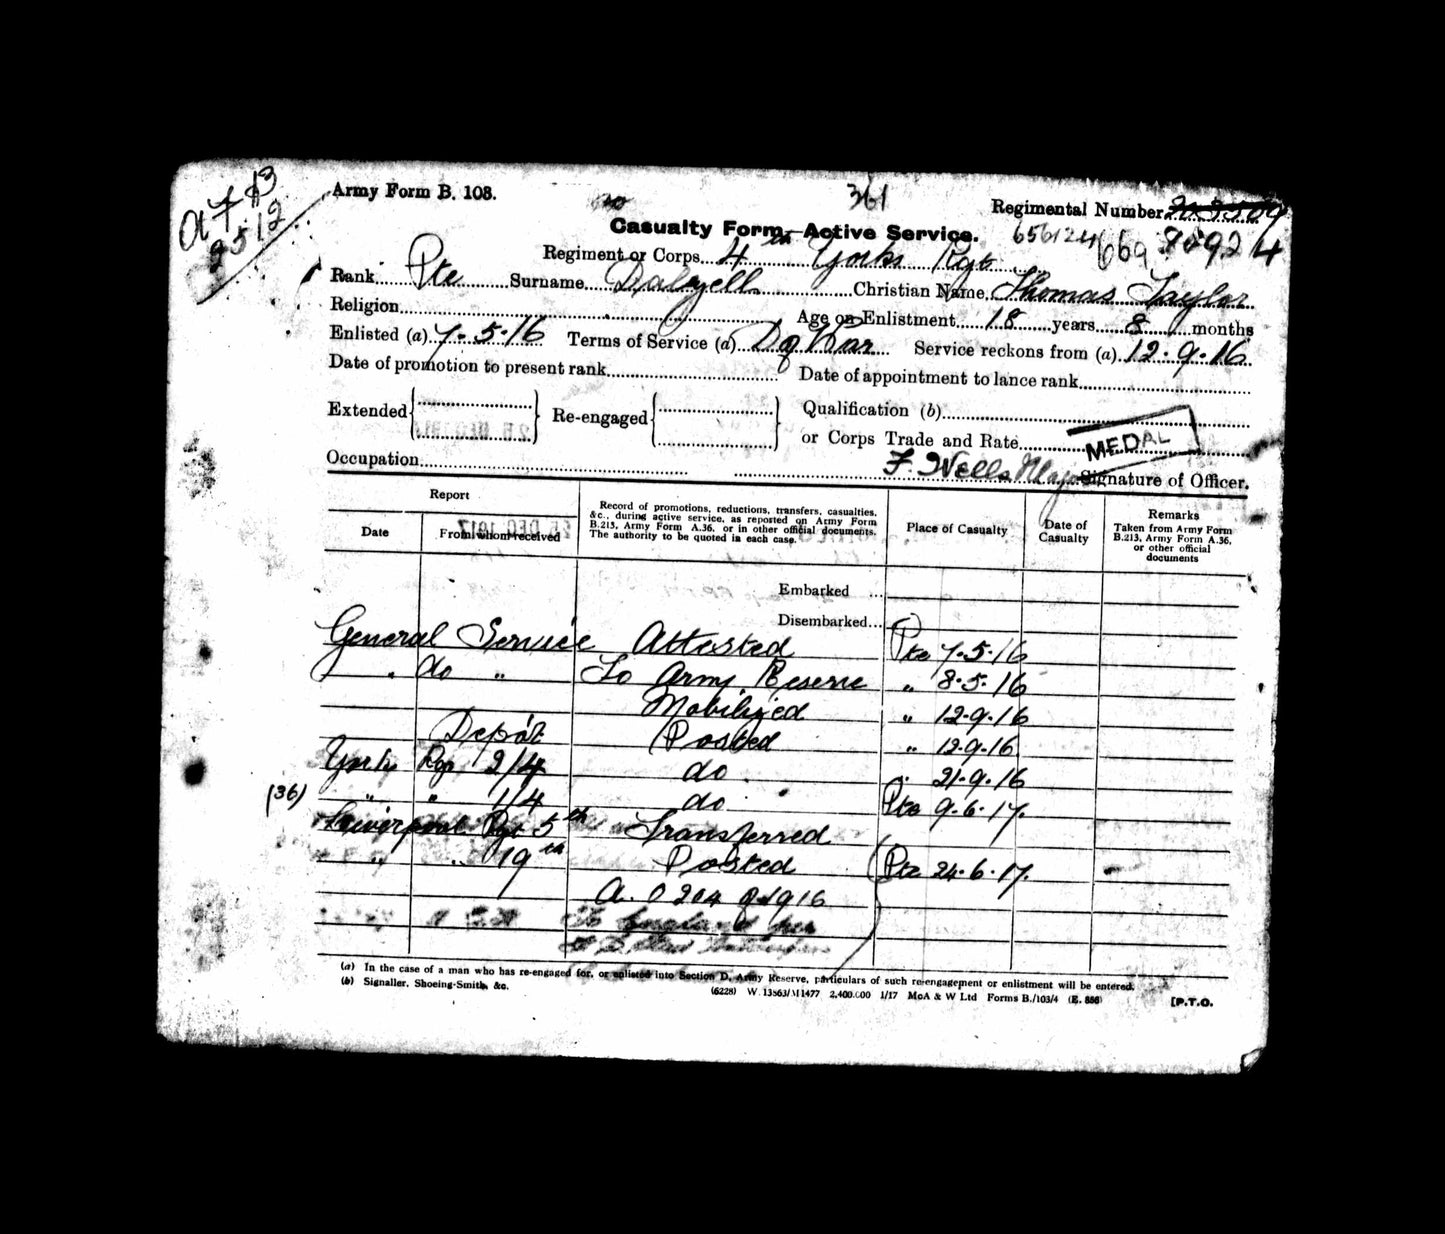 a F B
2512
Army Form B. 103.
361
Regimental Number
Casualty Form—Active Service.
656124
669
Regiment or Corps 4th Yorks Rgt
Rank Pte Surname Dalzell Christian Name Thomas Taylor
Religion
Age on Enlistment 18 years 8 months
Enlisted (a) 7.5.16 Terms of Service (a) D of War Service reckons from (a) 12.9.16
Date of promotion to present rank Date of appointment to lance rank
Extended Re-engaged Qualification (b)
or Corps Trade and Rate
MEDAL
Occupation F. Wells Major Signature of Officer.
Report
Date
From whom received
DEC 1917
Record of promotions, reductions, transfers, casualties,
&c., during active service, as reported on Army Form
B.213, Army Form A.36, or in other official documents.
The authority to be quoted in each case.
Place of Casualty
Date of
Casualty
Remarks
Taken from Army Form
B.213, Army Form A.36,
or other official
documents
Embarked ...
Disembarked...
General Service Attested Pte 7.5.16
do " To Army Reserve " 8.5.16
Mobilized " 12.9.16
Depôt Posted " 12.9.16
Yorks Rgt 2/4 do " 21.9.16
(36) " " 1/4 do Pte 9.6.17.
Liverpool Rgt 5th Transferred
" " 19th Posted Pte 24.6.17.
A. O 204 of 1916
To England per
(a) In the case of a man who has re-engaged for, or enlisted into Section D, Army Reserve, particulars of such re-engagement or enlistment will be entered.
(b) Signaller, Shoeing-Smith, &c.
(6228) W. 13563/M1477 2,400,000 1/17 McA & W Ltd Forms B./103/4 (E. 886)
[P.T.O.